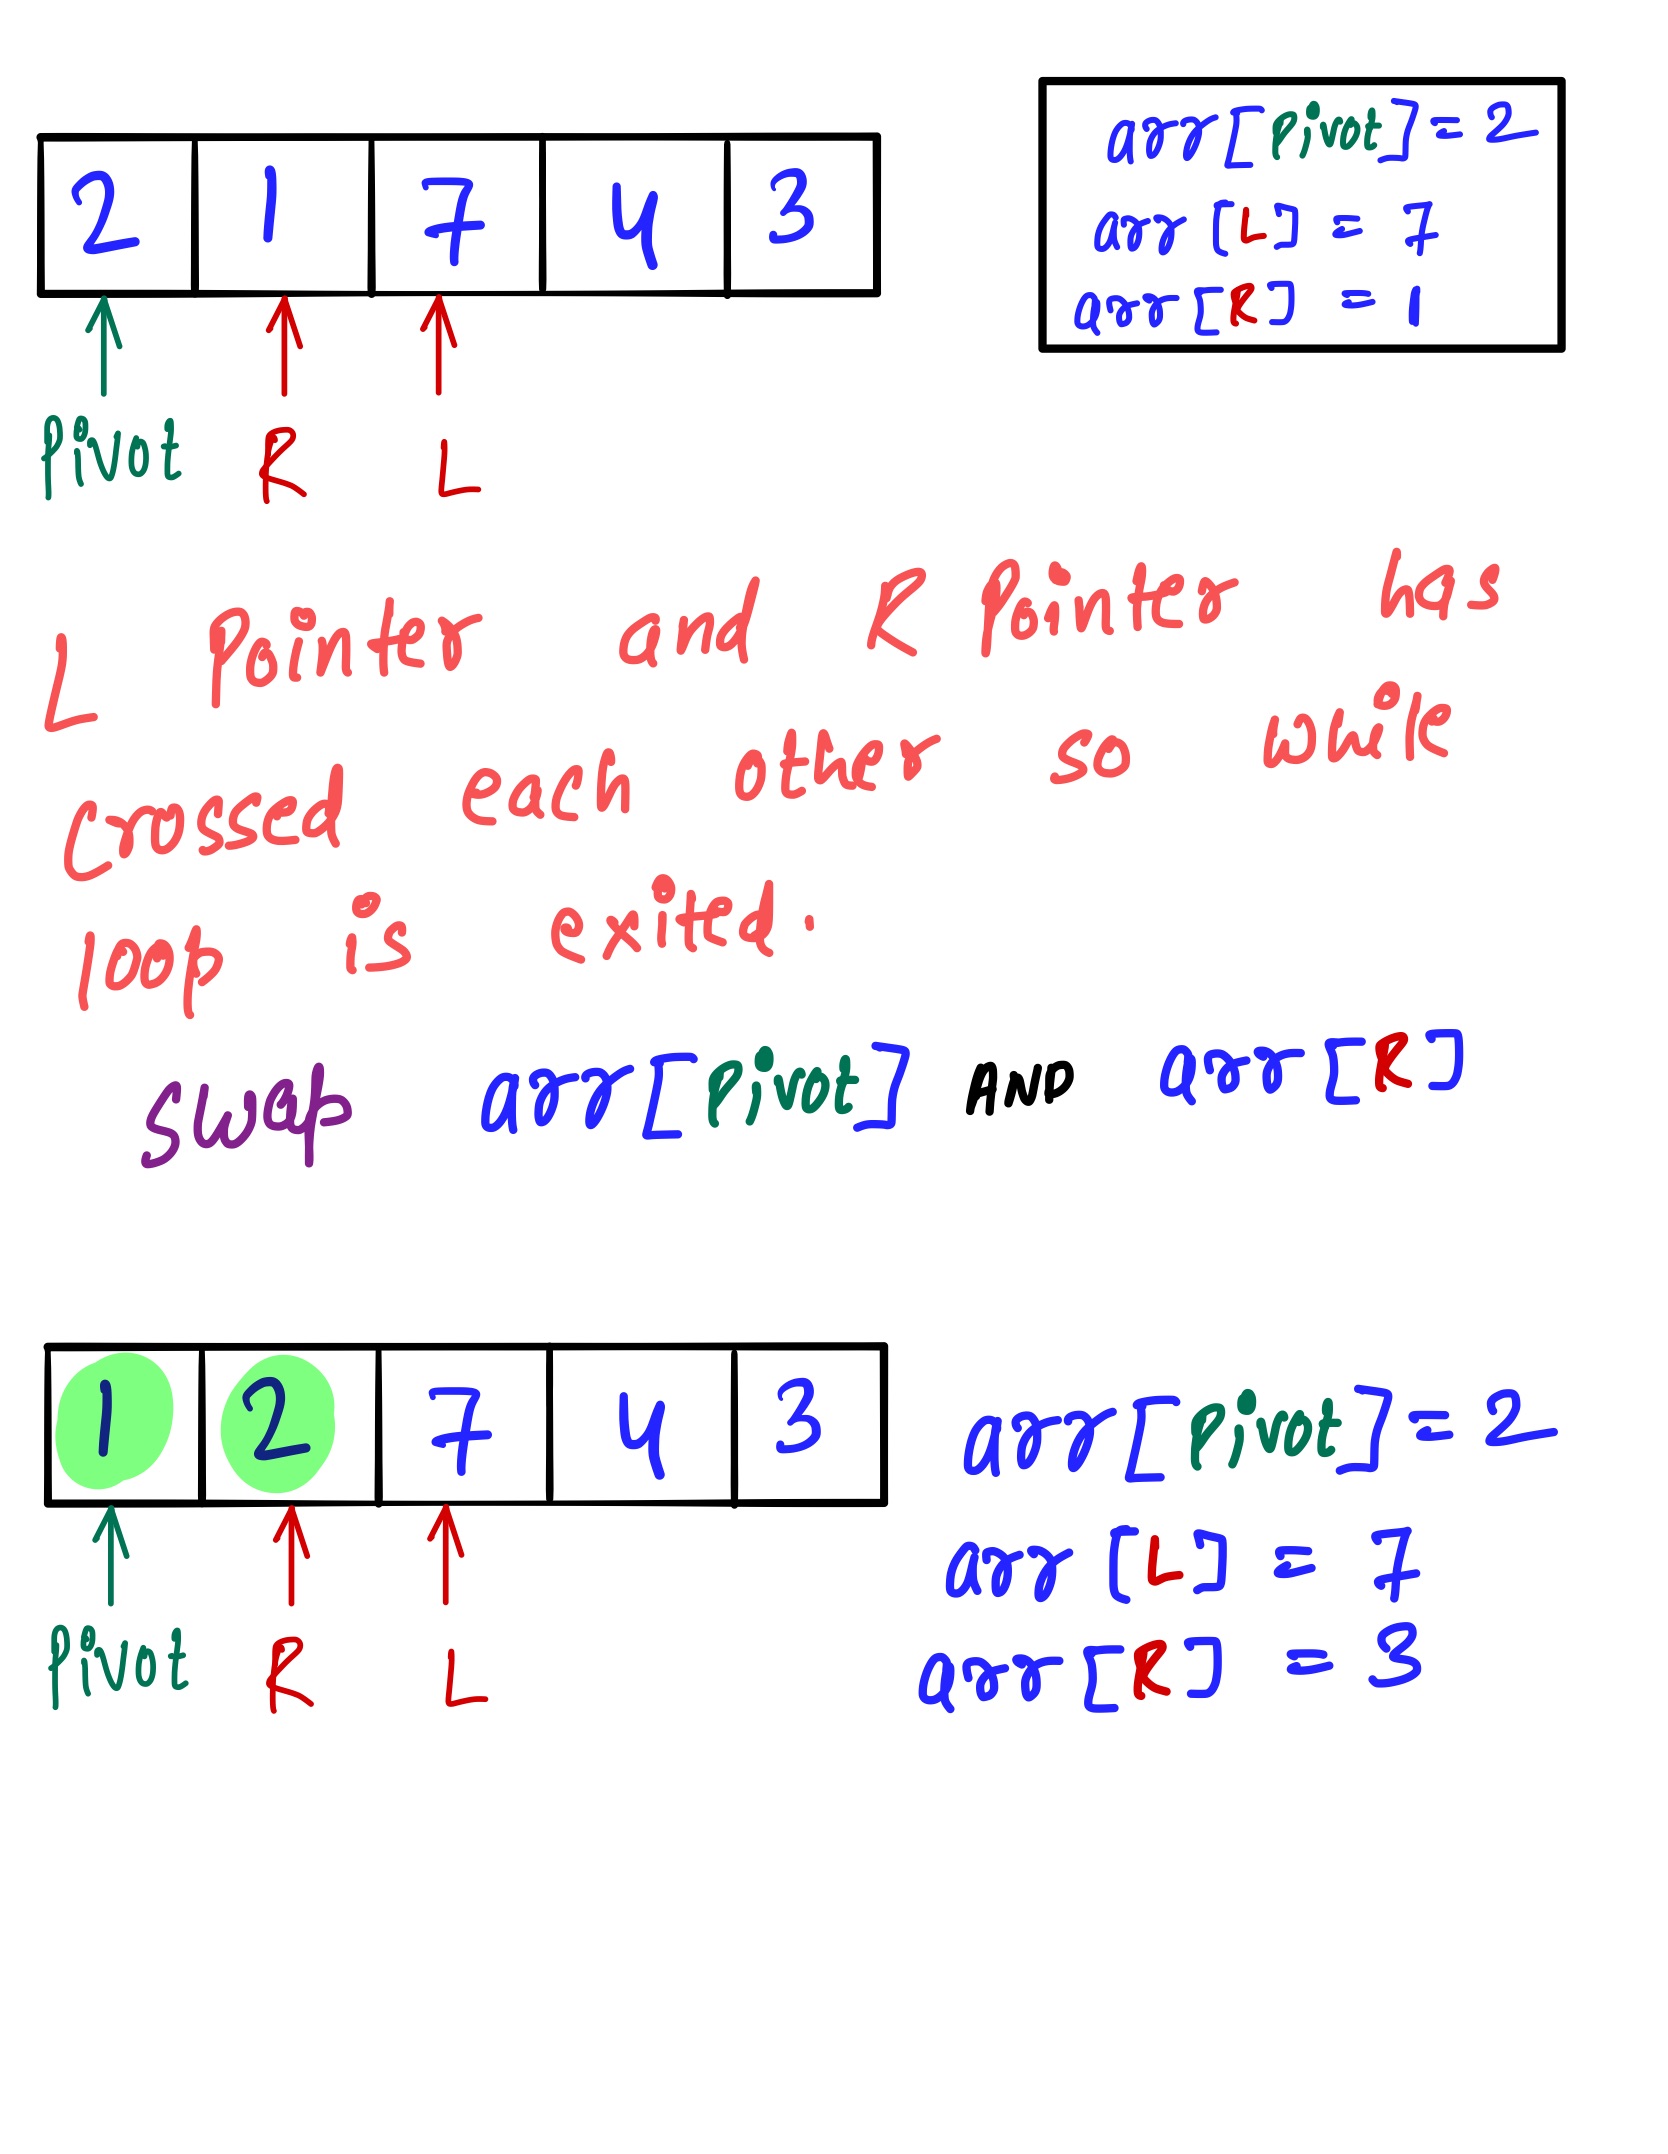 2 1 7 4 3
Pivot R L
arr[Pivot] = 2
arr [L] = 7
arr [R] = 1
L Pointer and R Pointer has
crossed each other so while
loop is exited.
swap arr[Pivot] AND arr[R]
1 2 7 4 3
Pivot R L
arr[Pivot] = 2
arr [L] = 7
arr [R] = 3